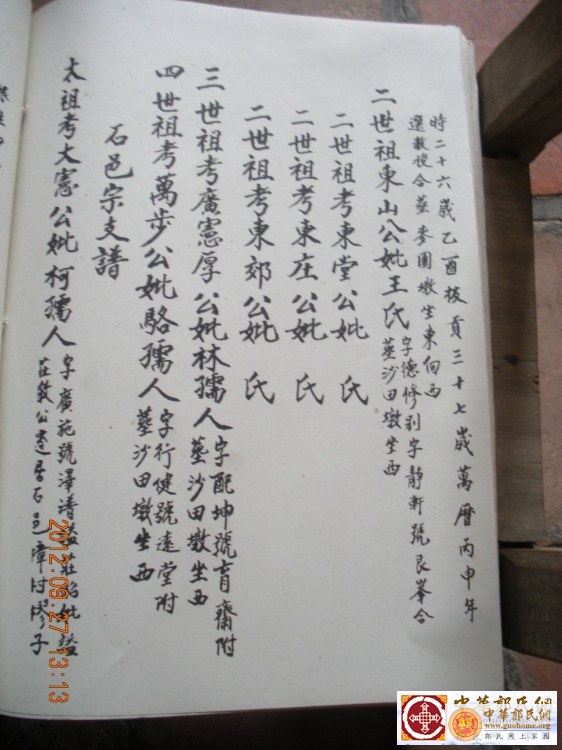 時二十六歲乙酉拔貢三十七歲萬曆丙申年
選教授合葬麥園墩坐東向西
二世祖東山公妣王氏字德修別字靜軒號艮峯合
葬沙田墩坐西
二世祖考東堂公妣 氏
二世祖考東庄公妣 氏
二世祖考東郊公妣 氏
三世祖考廣憲厚公妣林孺人字配坤號育齋附
葬沙田墩坐西
四世祖考萬步公妣駱孺人字行健號遠堂附
葬沙田墩坐西
石邑宗支譜
太祖考大憲公妣柯孺人字廣苑號澤清謚莊皆妣謚
莊發公遷居石邑潭村廖子
2012:09:27 13:13
中華郭氏網
中華郭氏網
www.guohome.org
郭氏網上家園